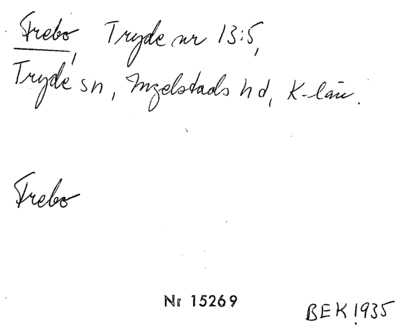 Frebo, Tryde nr 13:5,
Tryde sn, Ingelstads hd, K-län.
Frebo
Nr 15269
BEK 1935